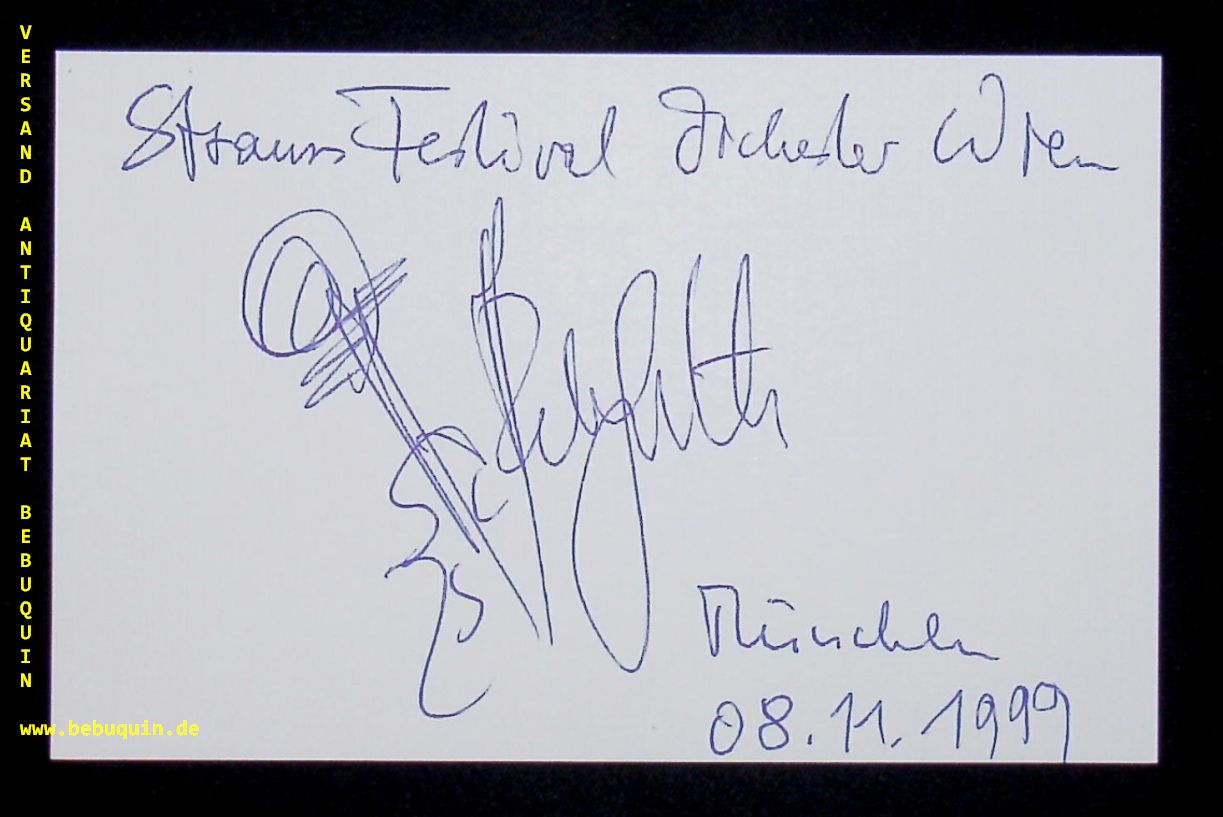 VERSAND ANTIQUARIAT BEBUQUIN
www.bebuquin.de
Strauss Festival Orchester Wien
München
08.11.1999